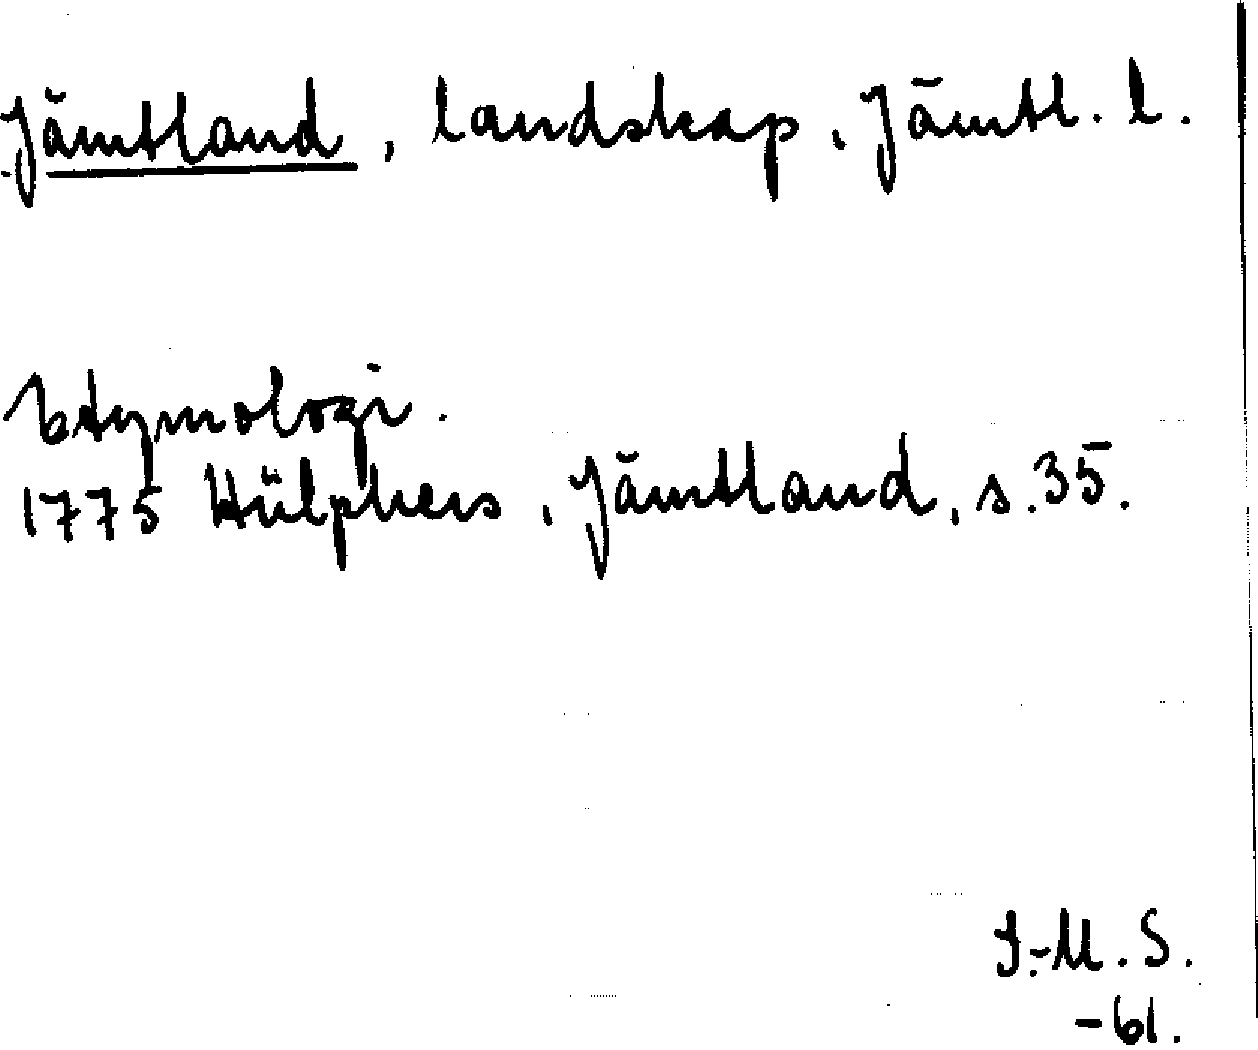 Jämtland, landskap, Jämtl. l.
Etymologi.
1775 Hülphers, Jämtland, s. 35.
I.-M. S.
-61.